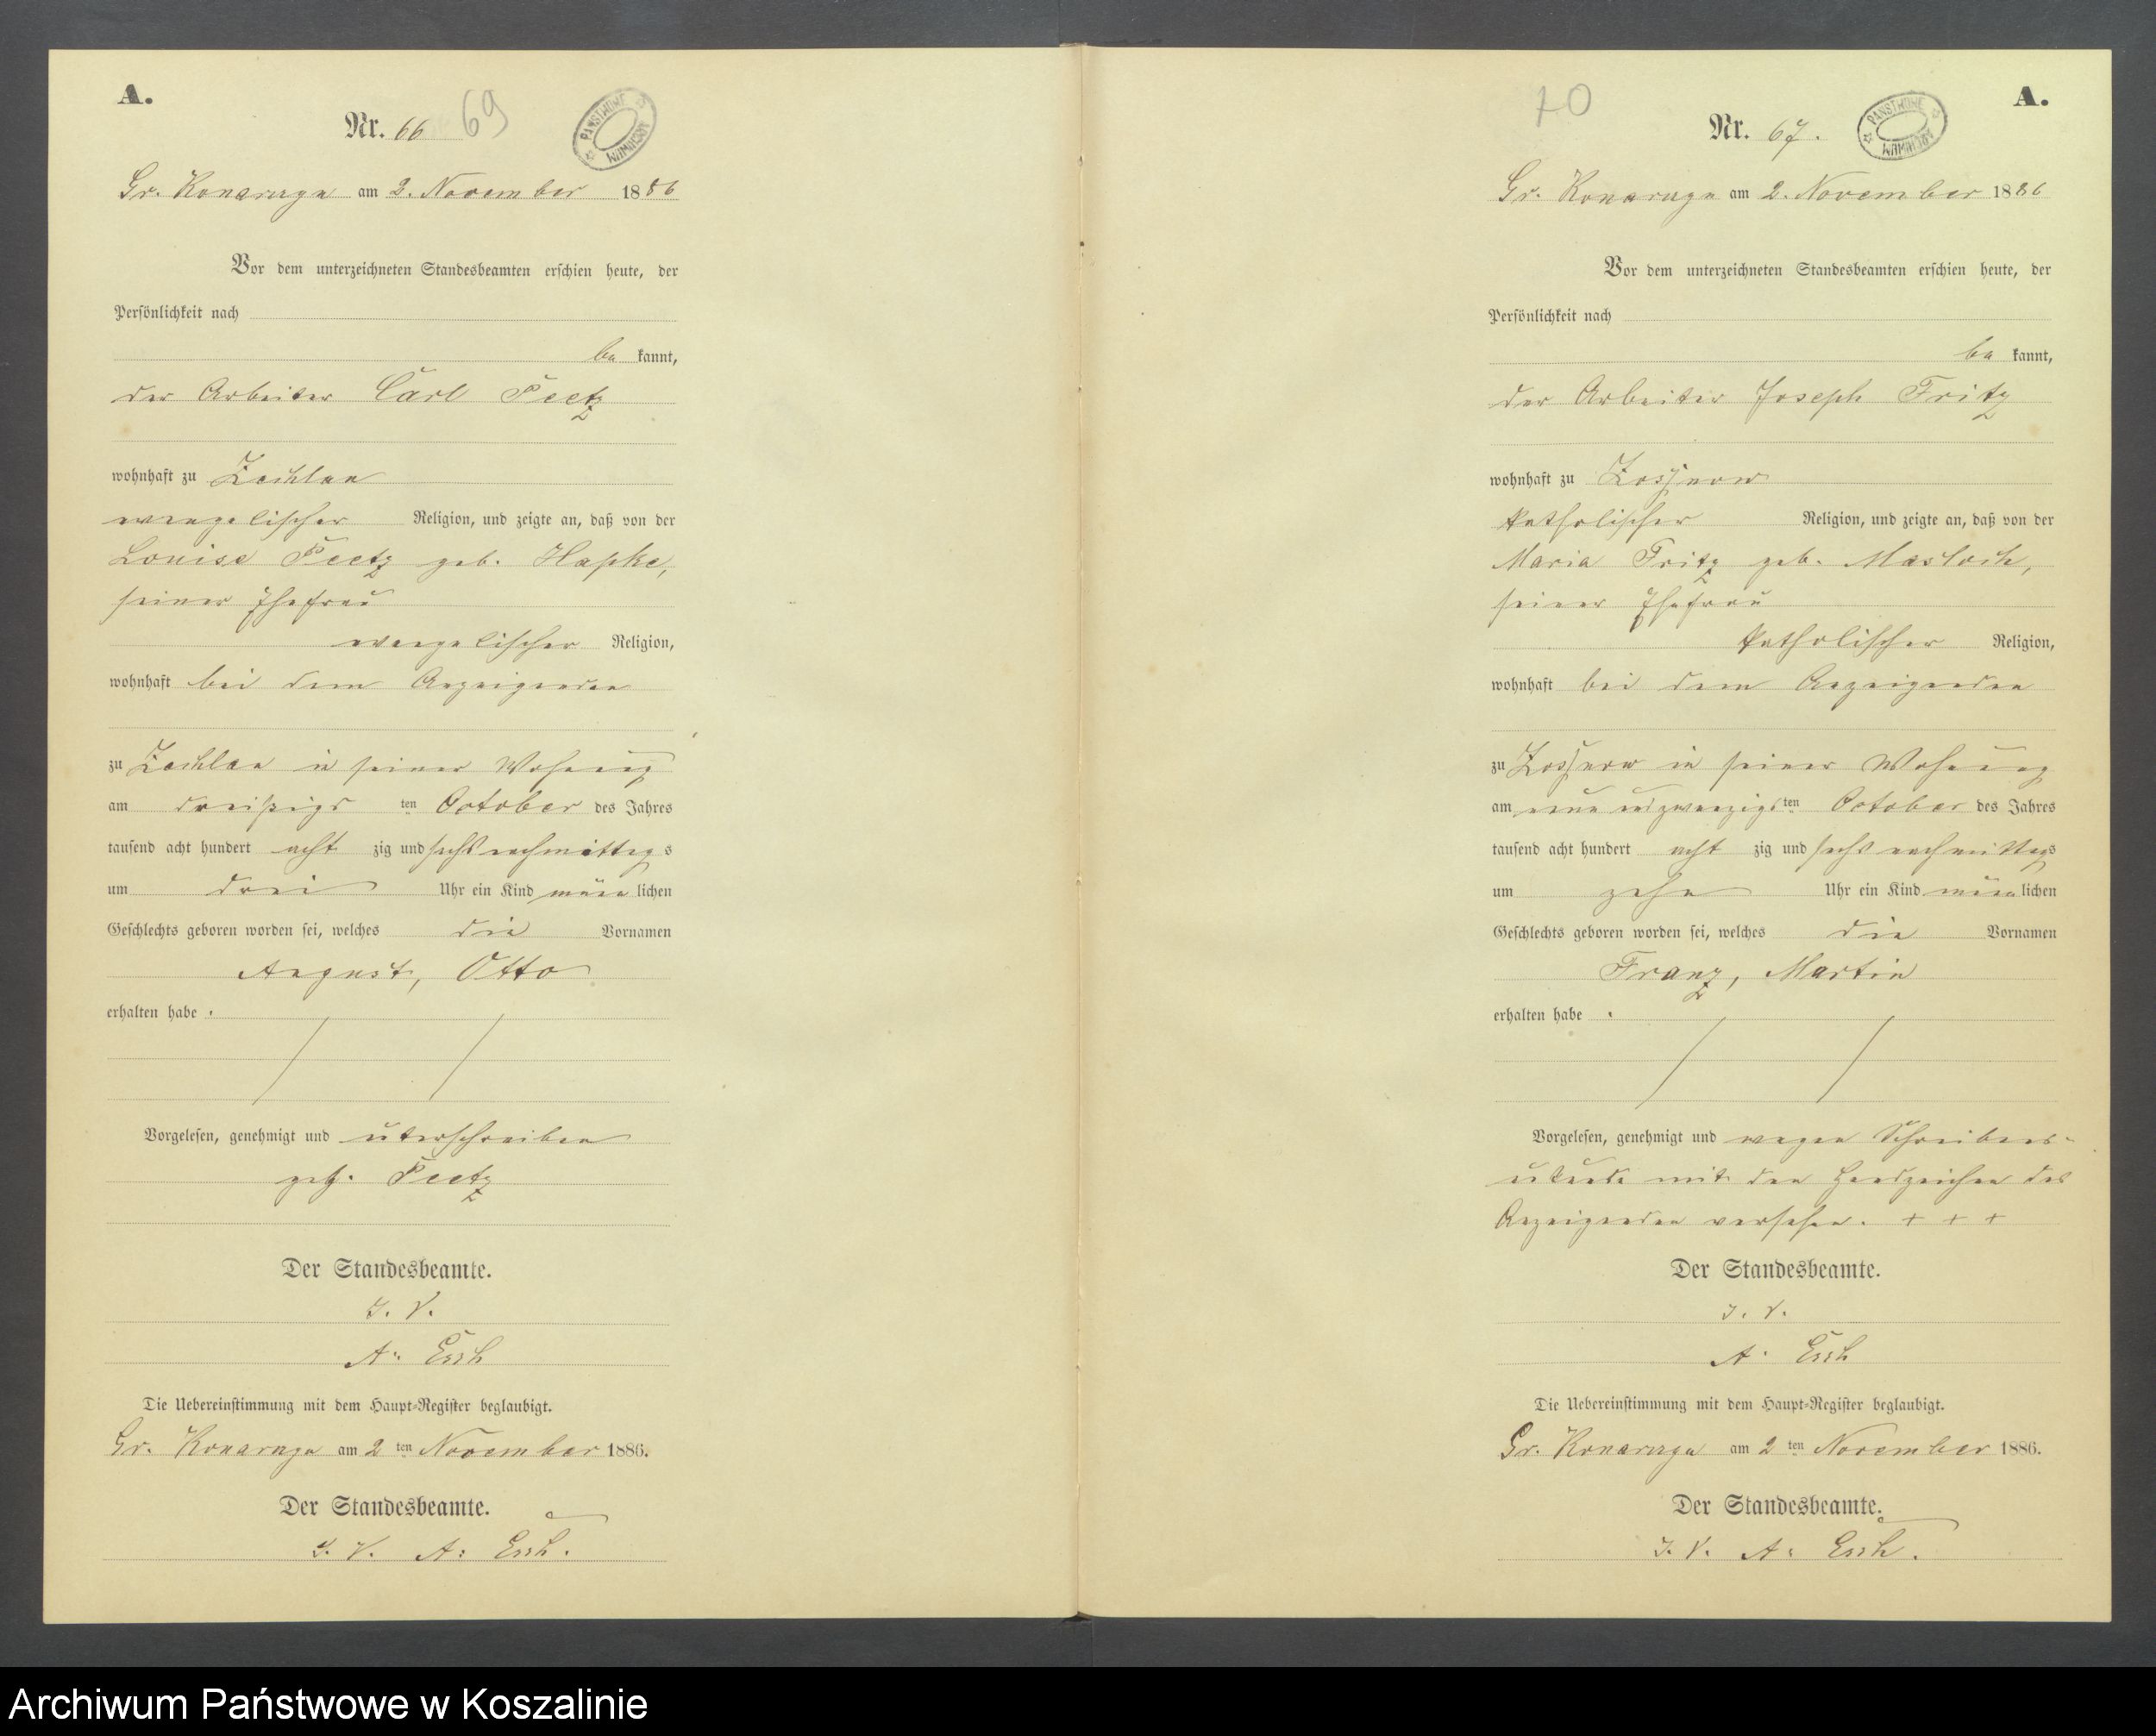 A.
Nr. 66 69
PAŃSTWOWE ARCHIWUM
Gr. Konarczyn am 2. November 1886
Vor dem unterzeichneten Standesbeamten erschien heute, der
Persönlichkeit nach
be kannt,
der Arbeiter Carl Peetz
wohnhaft zu Zechlau
evangelischer Religion, und zeigte an, daß von der
Louise Peetz geb. Hapke,
seiner Ehefrau
evangelischer Religion,
wohnhaft bei dem Anzeigenden
zu Zechlau in seiner Wohnung
am dreißigs ten October des Jahres
tausend acht hundert acht zig und sechs nachmittags
um drei Uhr ein Kind männ lichen
Geschlechts geboren worden sei, welches die Vornamen
August, Otto
erhalten habe.
Vorgelesen, genehmigt und unterschrieben
gez. Peetz
Der Standesbeamte.
J. V.
A.
Die Uebereinstimmung mit dem Haupt-Register beglaubigt.
Gr. Konarczyn am 2 ten November 1886.
Der Standesbeamte.
J. V. A.
A.
70
Nr. 67.
PAŃSTWOWE ARCHIWUM
Gr. Konarczyn am 2. November 1886
Vor dem unterzeichneten Standesbeamten erschien heute, der
Persönlichkeit nach
be kannt,
der Arbeiter Joseph Fritz
wohnhaft zu Zossnow
katholischer Religion, und zeigte an, daß von der
Maria Fritz geb. Masloch,
seiner Ehefrau
katholischer Religion,
wohnhaft bei dem Anzeigenden
zu Zossnow in seiner Wohnung
am neun und zwanzigs ten October des Jahres
tausend acht hundert acht zig und sechs nachmittags
um zehn Uhr ein Kind männ lichen
Geschlechts geboren worden sei, welches die Vornamen
Franz, Martin
erhalten habe.
Vorgelesen, genehmigt und wegen Schreibens-
unkunde mit den Handzeichen des
Anzeigenden versehen. + + +
Der Standesbeamte.
J. V.
A.
Die Uebereinstimmung mit dem Haupt-Register beglaubigt.
Gr. Konarczyn am 2 ten November 1886.
Der Standesbeamte.
J. V. A.
Archiwum Państwowe w Koszalinie